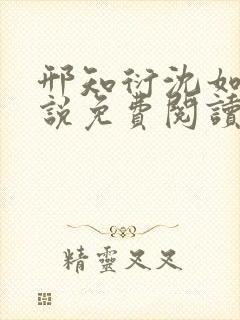 邢知衍沈如
說免費閱讀
精靈又又